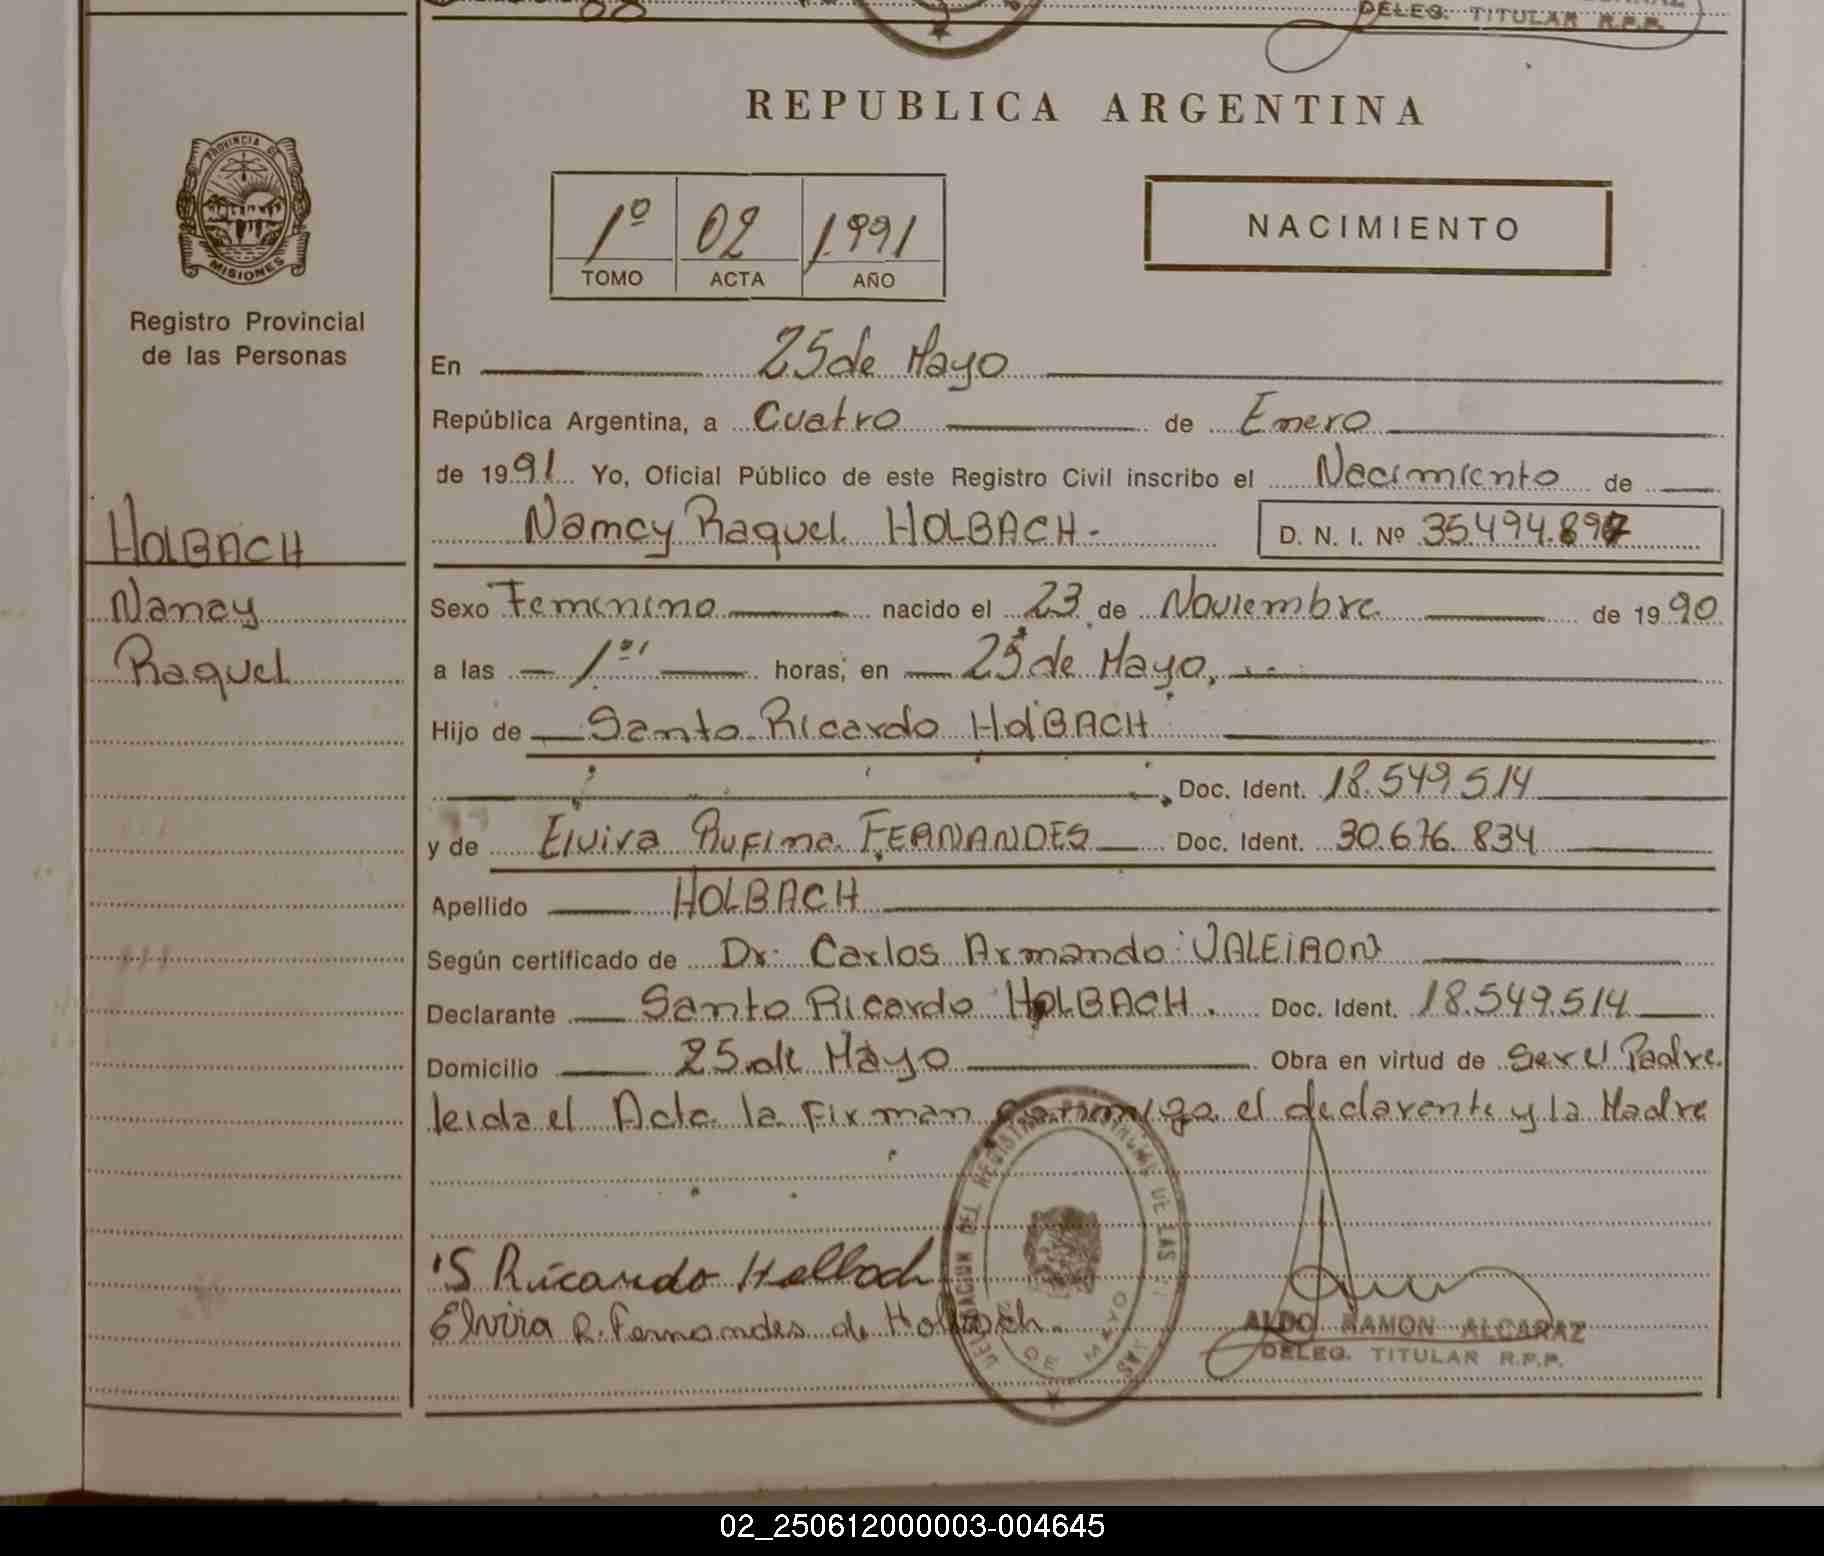 DELEG. TITULAR R.P.P.
REPUBLICA ARGENTINA
PROVINCIA DE
MISIONES
Registro Provincial
de las Personas
1º 02 1991
TOMO ACTA AÑO
NACIMIENTO
En 25 de Mayo
República Argentina, a Cuatro de Enero
de 1991 Yo, Oficial Público de este Registro Civil inscribo el Nacimiento de
Nancy Raquel HOLBACH.- D. N. I. Nº 35.494.897
HOLBACH
Nancy
Raquel
Sexo Femenino nacido el 23 de Noviembre de 1990
a las 1º' horas; en 25 de Mayo,
Hijo de Santo Ricardo HolBACH
Doc. Ident. 18.549.514
y de Elvira Rufina FERNANDES Doc. Ident. 30.676.834
Apellido HOLBACH
Según certificado de Dr. Carlos Armando VALEIRON
Declarante Santo Ricardo HOLBACH. Doc. Ident. 18.549.514
Domicilio 25 de Mayo Obra en virtud de Ser el Padre
leida el Acta la Firman conmigo el declarante y la Madre
S Ricardo Holbach
Elvira R. Fernandes de Holbach.
DELEGACION DEL REGISTRO PROVINCIAL DE LAS
DE MAYO
ALDO RAMON ALCARAZ
DELEG. TITULAR R.P.P.
02_250612000003-004645